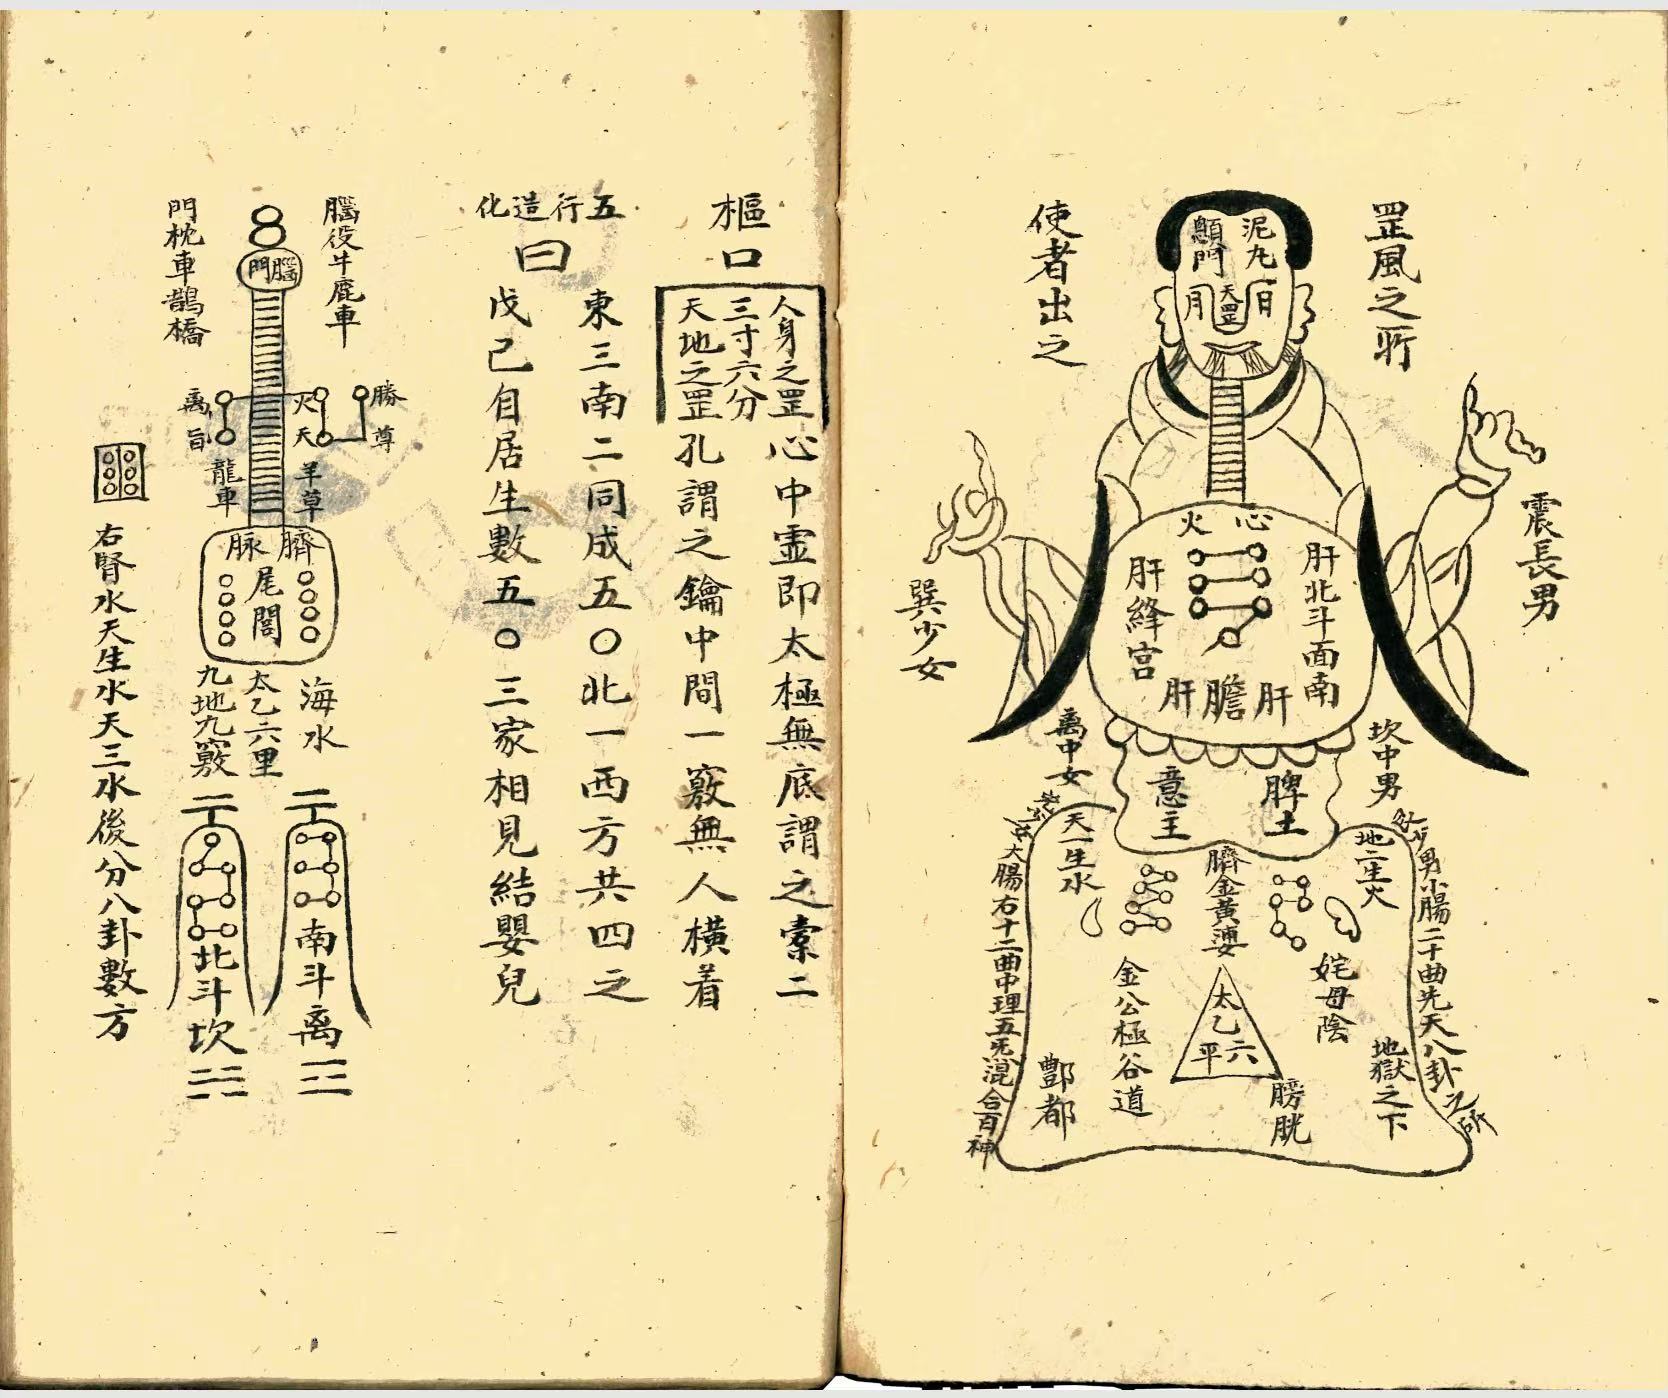 罡風之所
使者出之
泥丸
顖門
日
月
天罡
震長男
巽少女
心
火
肝北斗面南
肝絳宮
肝膽肝
坎中男
离中女
脾土
意主
地二生火
天一生水
男小腸二十曲先天八卦之
大腸右十二曲中理五炁混合百神
臍金黃婆
姹母陰
金公極谷道
太乙六平
地獄之下
膀胱
酆都
樞口
人身之罡
三寸六分
天地之罡
心中虛即太極無底謂之橐二
孔謂之鑰中間一竅無人橫着
五行造化
曰
東三南二同成五〇北一西方共四之
戊己自居生數五〇三家相見結嬰兒
腦役牛鹿車
門枕車鵲橋
腦門
勝
尊
火
天
禹
旨
羊草
龍車
臍
脉
尾閭
海水
太乙六里
九地九竅
南斗离
北斗坎
右腎水天生水天三水後分八卦數方